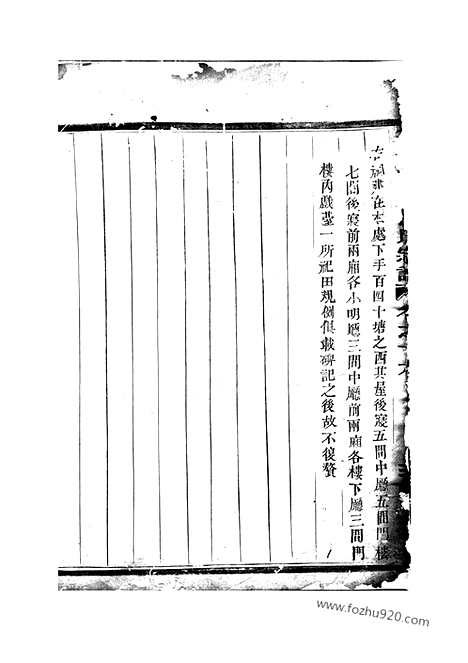 祠建在本處下手百四十塘之西其屋後寢五間中廳五間門樓
七間後寢前兩廂各小明廳三間中廳前兩廂各樓下廳三間門
樓內戲臺一所祀田規例俱載碑記之後故不復贅
www.fozhu920.com